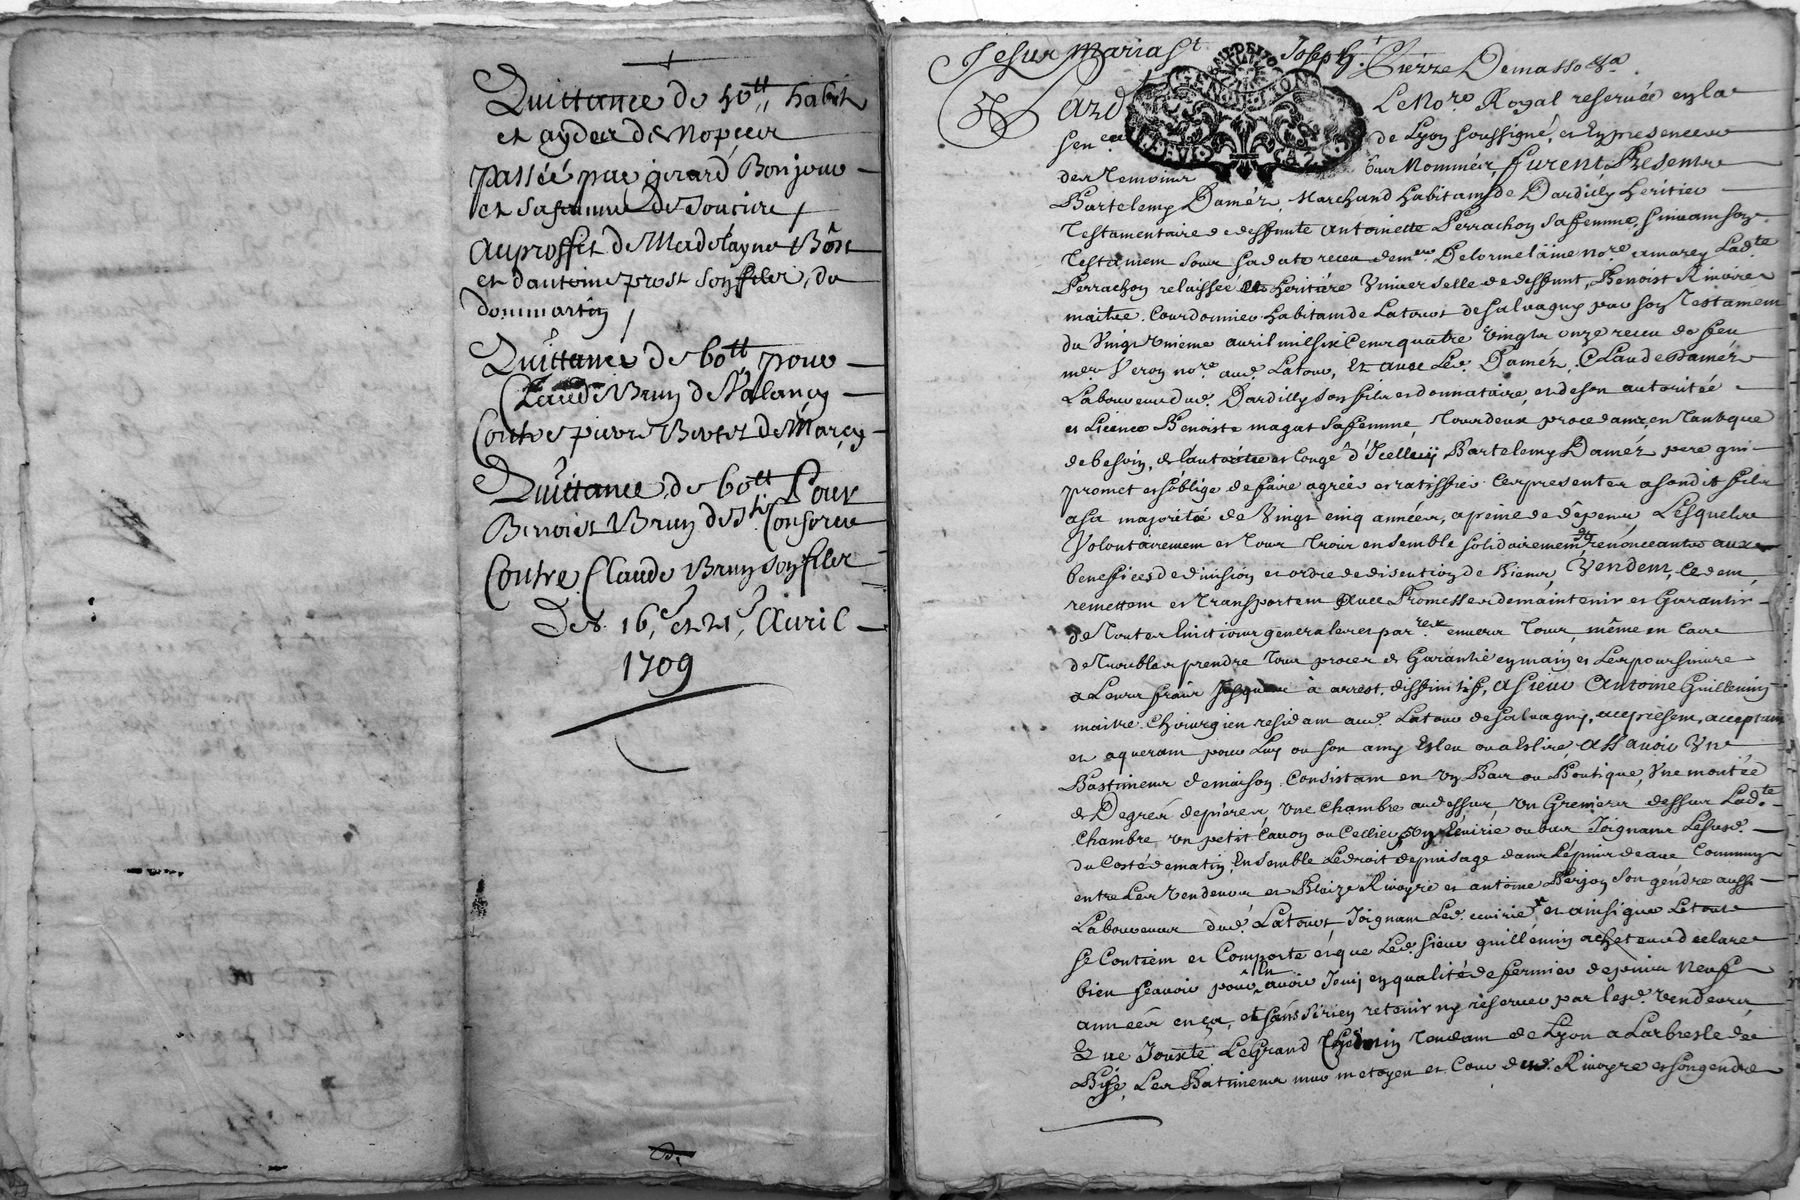 Quittance de 50tt habit
et aydes de Nopces
passée par girard Bonjour
et sa femme de Soucieu
Au proffit de Madelayne Bôst
et dantoine prost son filz, de
dommartin
Quittance de 60tt pour
Claude Brun de
Contre pierre de Marcy
Quittance de 60tt Pour
Benoist Brun de St Consorce
Contre Claude Brun son filz
Des 16e et 21e Avril
1709
Jesus Maria St Joseph. St Pierre
Pard Le Nore Royal reservée en la
Senée de Lyon soussigné, et en presence
des Temoins bas Nommés, furent Presents
Bartelemy Daméz, Marchand habitant de Dardilly heritier
Testamentaire de deffunte Antoinette Perrachon sa femme, suivant son
Testament sous sa date receu de me Delorme laine nore. Ladte
Perrachon relaissée heritière Universelle de deffunt, Benoist Rivoire
maitre Courdonnier habitant de Latour de Salvagny par son Testament
du Vingt Unieme avril mil six Cens quatre Vingts onze receu de feu
me nore aud Latour, Et avec Led. Daméz, Claude Daméz
Laboureur dud. Dardilly son fils et donnataire, et de son autorité
et Licence Benoiste magat sa femme, Tous deux procedants en Tant que
de besoin, de l'autorité et Congé d'Icelluy Bartelemy Daméz pere qui
promet et s'oblige de faire agréer et ratiffier Ces presentes a sondit fils
a sa majorité de Vingt cinq années, a peine de dêpens, Lesquels
Volontairement et Tous Trois ensemble solidairement renonceants aux
benefices de division et ordre de discution de biens, Vendent, Cedent,
remettent et Transportent Avec Promesses de maintenir et Garantir
de Toutes Evictions generales et parres envers Tous, même en Cas
de Troubles prendre Tous proces de Garantie en main et Les poursuivre
a Leurs frais Jusques à arrest diffinitif, A sieur Antoine Guillemin
maitre Chirurgien residant aud. Latour de Salvagny, acy present, acceptant
et aquerant pour Luy ou son amy Esleu ou a Eslire, Assavoir Un
Bastiment de maison Consistant en un Bas ou Boutique, Une montée
de Degrés de pierre, Une Chambre audessus, Un Grenier dessus Ladte
Chambre, un petit Cavon ou Cellier, ecuirie ou bas Joignant Lesusd.
du Costé de matin, Ensemble Le droit de puisage dans Le puis de Commun
entre Les Vendeurs et Blaize Rivoyre et antoine son gendre aussi
Laboureur dud. Latour, Joignant Led. ecuirie, et ainsi que Le tout
se Contient et Comporte et que Led. sieur guillémin acheteur declare
bien sçavoir pour En avoir Joüy en qualité de fermier depuis Neuf
années en ça, et sans s'y rien retenir ny réserver par lesd. Vendeurs
Que Jouxte Le Grand Chemin Tendant de Lyon a Larbresle de
Bise, Les Batiments mur metoyen et Cour dud. Rivoyre et son gendre